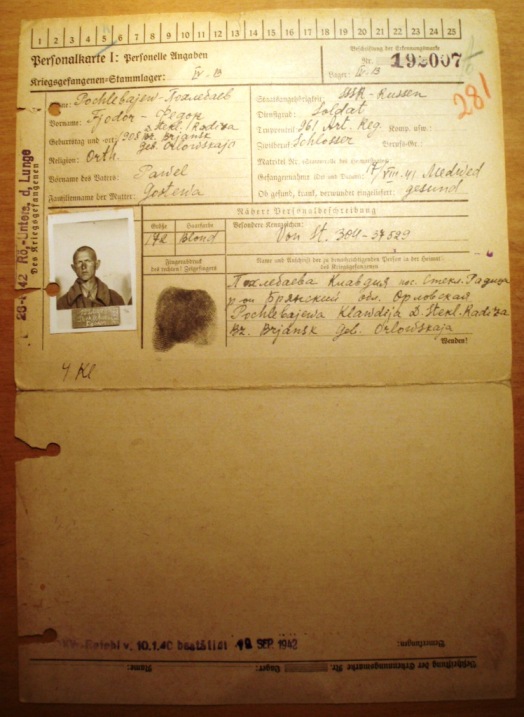 1 2 3 4 5 6 7 8 9 10 11 12 13 14 15 16 17 18 19 20 21 22 23 24 25
Personalkarte I: Personelle Angaben
Kriegsgefangenen-Stammlager: IV B
Beschriftung der Erkennungsmarke
Nr. 192007
Lager: IV B
281
Name: Pochlebajew-Похлебаев
Vorname: Fjodor - Фёдор
Geburtstag und -ort: 1905 D. Stekl. Radiza
Bz. Brjansk
Geb. Orlowskaja
Religion: Orth.
Vorname des Vaters: Pawel
Familienname der Mutter:
Staatsangehörigkeit: SSR - Russen
Dienstgrad: Soldat
Truppenteil: 961 Art. Reg. Komp. usw.:
Zivilberuf: Schlosser Berufs-Gr.:
Matrikel Nr.
Gefangennahme (Ort und Datum): VIII. 41 Medwed
Ob gesund, krank, verwundet eingeliefert: gesund
Rö.-Unters. d. Lunge
Des Kriegsgefangenen
Nähere Personalbeschreibung
Größe Haarfarbe Besondere Kennzeichen:
172 Blond Von St. 304 - 37529
Fingerabdruck
des rechten! Zeigefingers
Name und Anschrift der zu benachrichtigenden Person in der Heimat
des Kriegsgefangenen
Похлебаева Клавдия пос. Стекл. Радица
р-он Брянский обл. Орловская
Pochlebajewa Klawdija D. Stekl. Radiza
Bz. Brjansk Geb. Orlowskaja
Wenden!
4 Kl
v. 10.1.40 bestätigt 18 SEP. 1942
Bemerkungen:
Beschriftung der Erkennungsmarke Nr. Lager: Name: